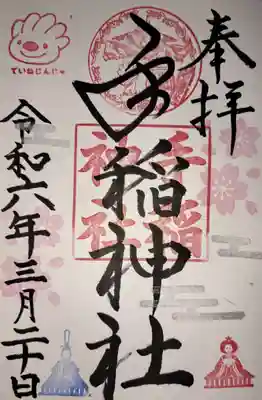 奉拝
手稲神社
手稲
神社
令和六年三月二十日
ていねじんじゃ